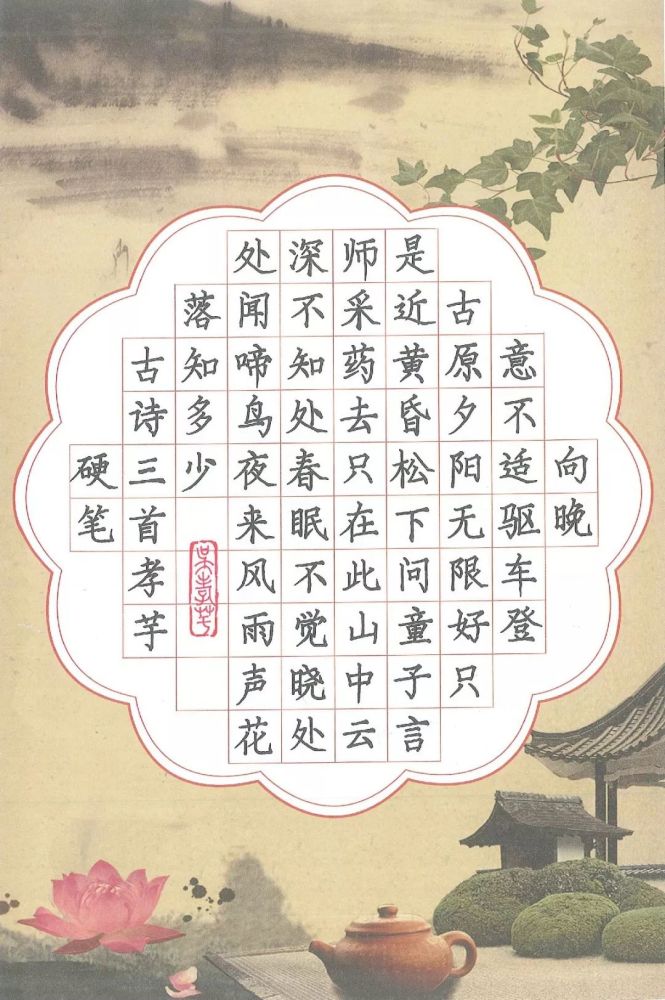 向晚
意不适驱车登
古原夕阳无限好只
是近黄昏松下问童子言
师采药去只在此山中云
深不知处春眠不觉晓处
处闻啼鸟夜来风雨声花
落知多少
古诗三首孝芋
硬笔